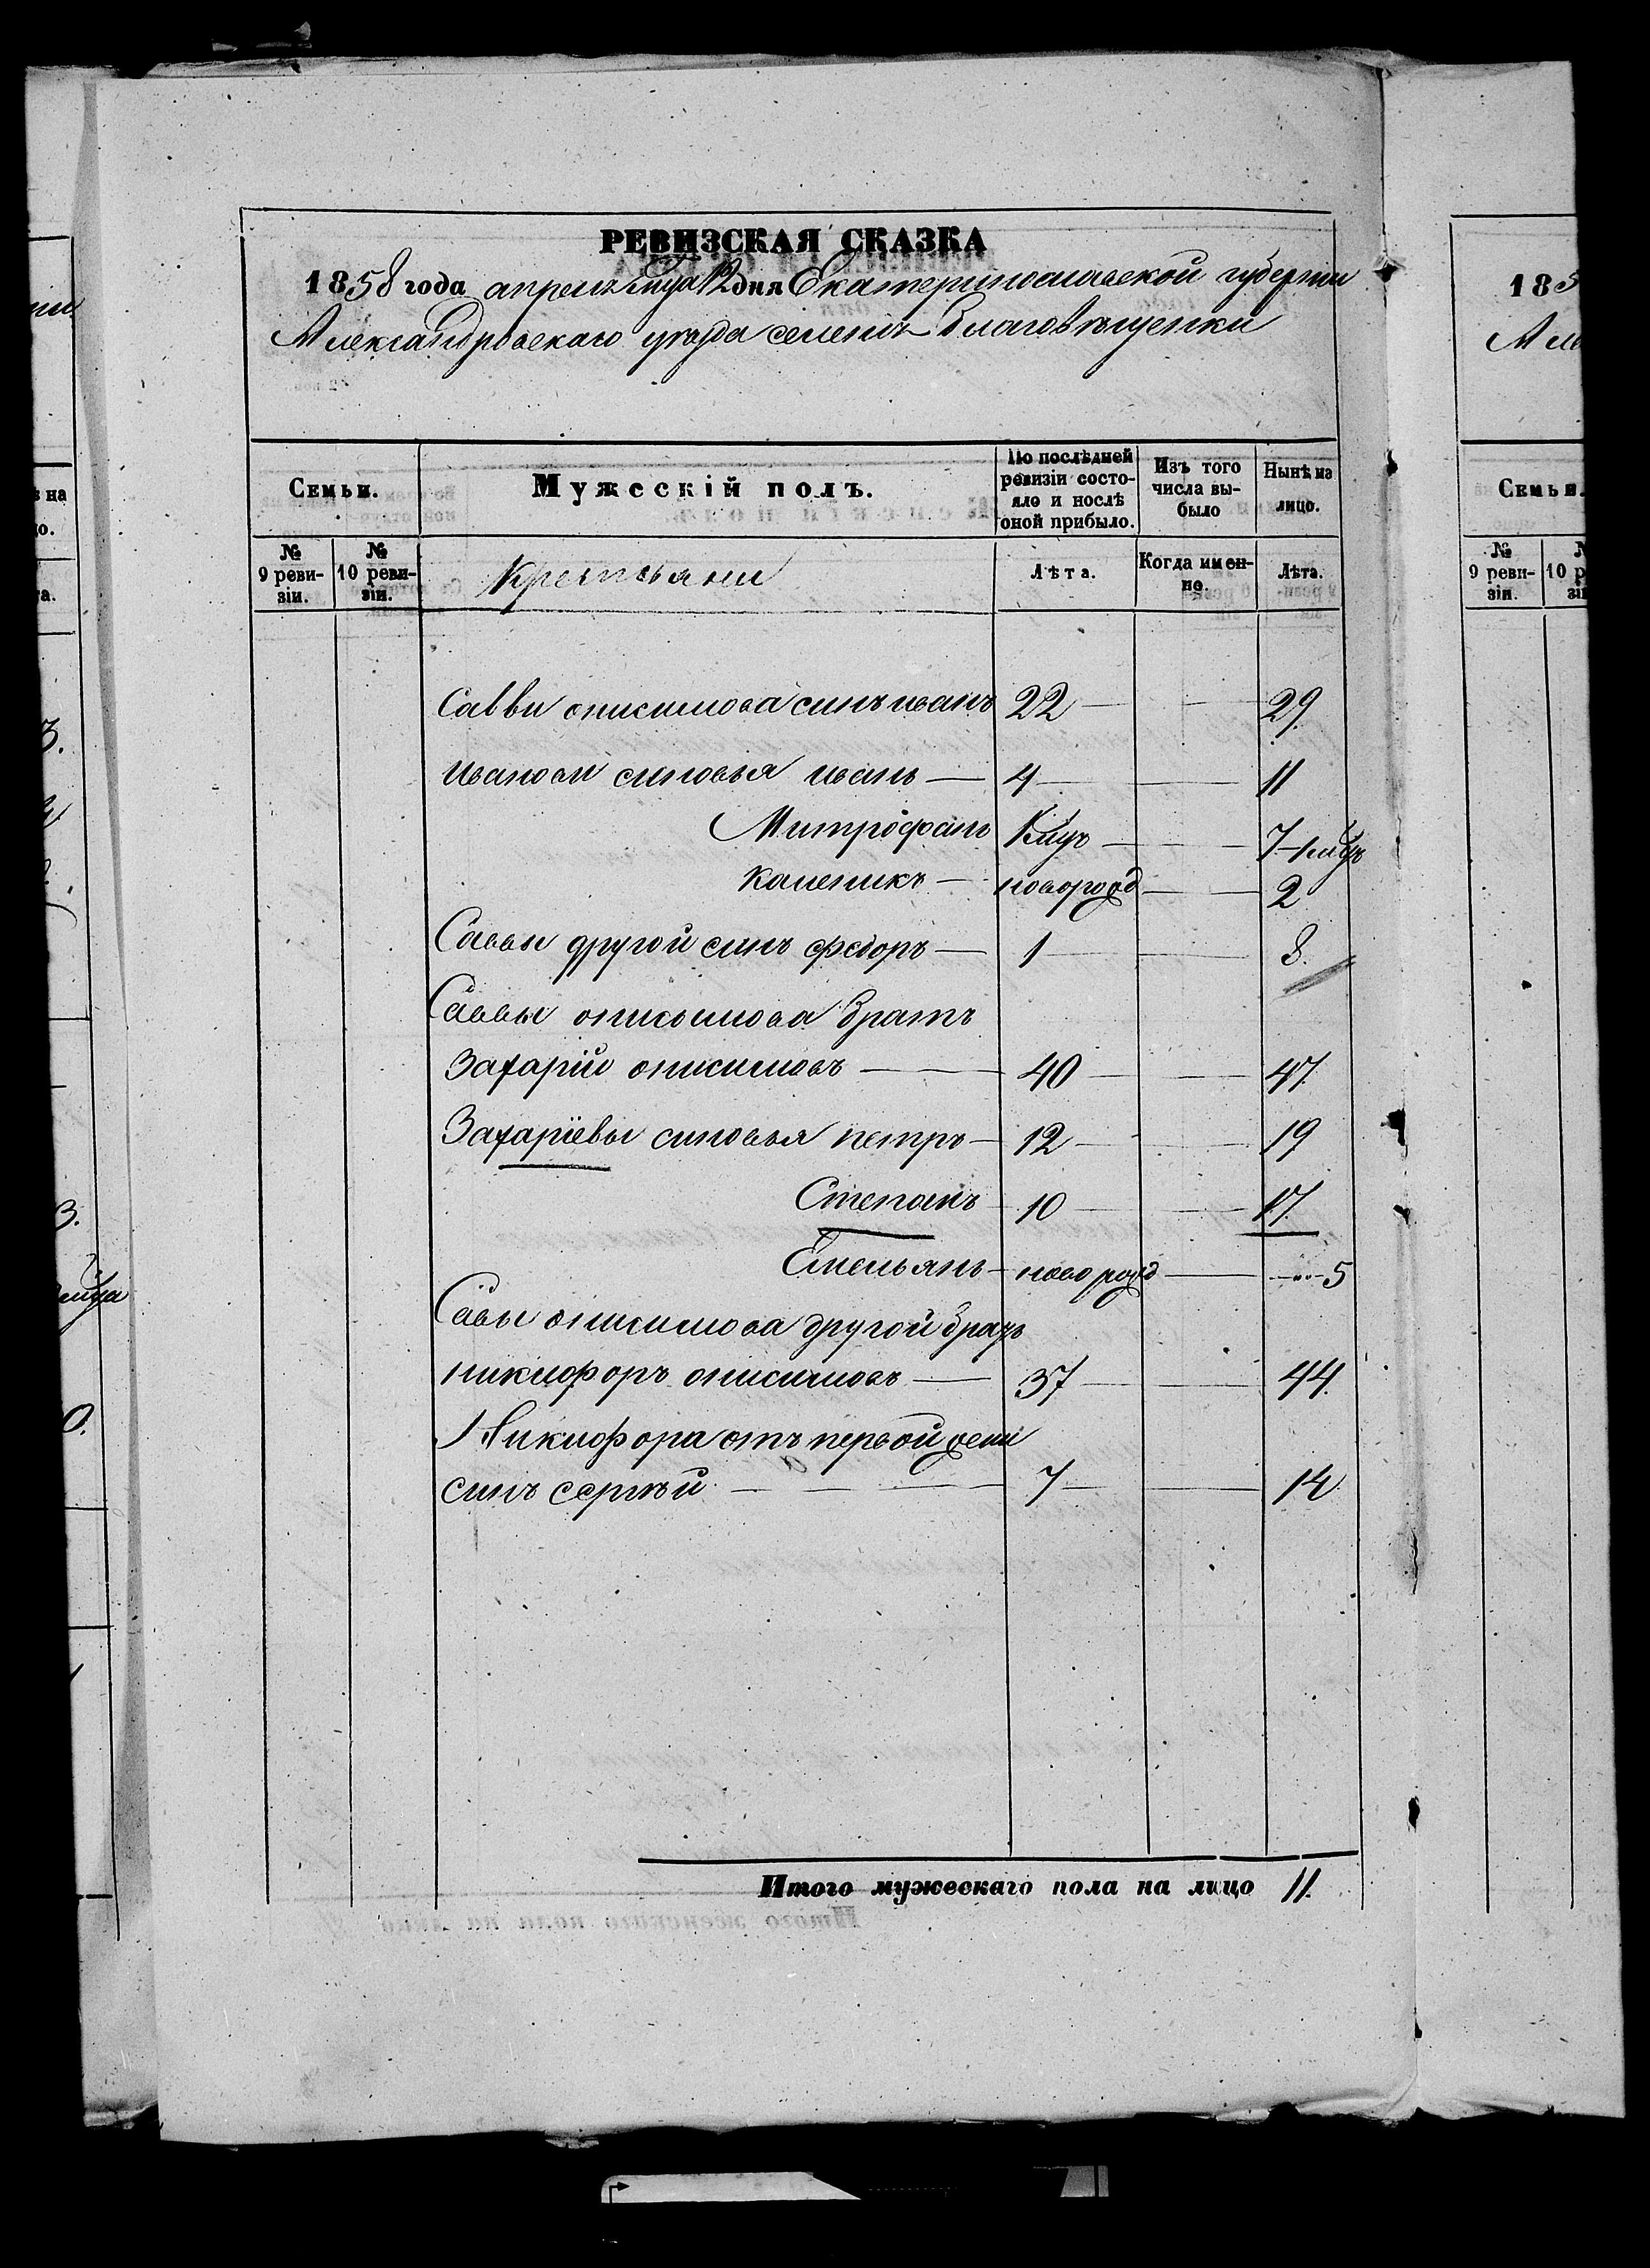 РЕВИЗСКАЯ СКАЗКА
1858 года апреля мца 12 дня Екатеринославской губернии
Александровскаго уезда селенія Благовѣщенки
Семьи.
Мужескій полъ.
По послѣдней ревизіи состояло и послѣ оной прибыло.
Изъ того числа выбыло
Нынѣ на лицо.
№ 9 ревизіи.
№ 10 ревизіи.
Крестьяни
Лѣта.
Когда именно.
Лѣта.
Савви онисимова синъ иванъ 22 — — 29.
Иванови синовья иванъ — 4 — — 11
Митрофанъ — — 7
Каленикъ — новорожд — — 2
Саввы другой синъ федоръ — 1 — — 8.
Саввы онисимова братъ
Захарій онисимовъ — 40 — — 47.
Захаріевы синовья петръ — 12 — — 19
Степанъ — 10 — — 17.
Емельянъ — новорожд — 5
Савы онисимова другой братъ
никифоръ онисимовъ — 37 — — 44.
Никифора отъ первой жени
синъ сергѣй — — — 7 — — 14
Итого мужескаго пола на лицо 11.
185
Але
Семьи.
№ 9 ревизіи.